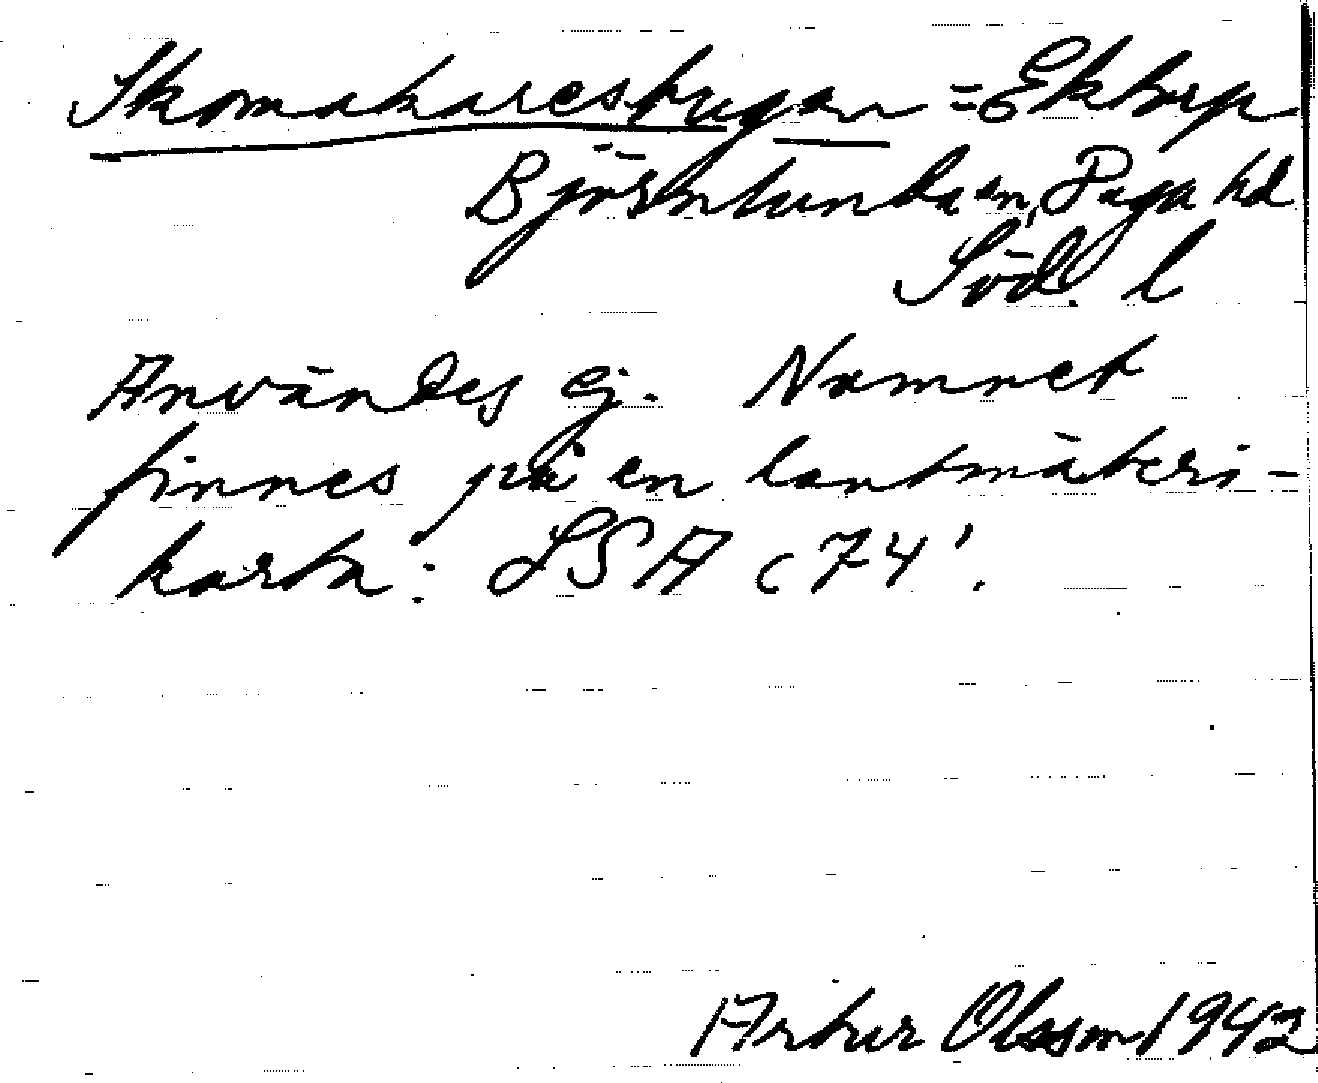 Skomakarestugan = Ektorp
Björnlunda sn, Daga hd
Söd. l
Användes ej. Namnet
finnes på en lantmäteri-
karta: LSA c 74'.
Artur Olsson 1942